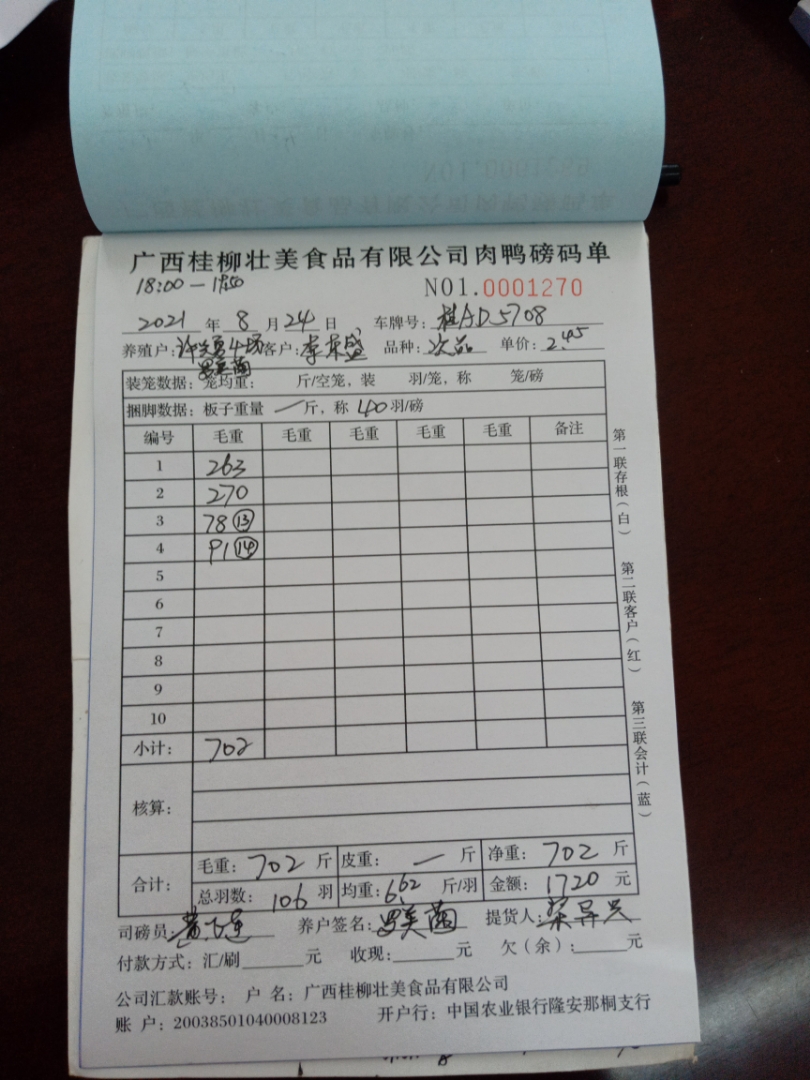 广西桂柳壮美食品有限公司肉鸭磅码单
18:00—1850
NO1.0001270
2021 年 8 月 24 日 车牌号: 桂AD5708
养殖户: 4场 客户: 李荣盛 品种: 次品 单价: 2.45
罗美菌
装笼数据: 笼均重: 斤/空笼, 装 羽/笼, 称 笼/磅
捆脚数据: 板子重量 — 斤, 称 40 羽/磅
编号 毛重 毛重 毛重 毛重 毛重 备注
1 263
2 270
3 78 ⑬
4 91 ⑭
5
6
7
8
9
10
小计: 702
核算:
合计: 毛重: 702 斤 皮重: — 斤 净重: 702 斤
总羽数: 106 羽 均重: 6.62 斤/羽 金额: 1720 元
司磅员: 养户签名: 罗美菌 提货人:
付款方式: 汇/刷 元 收现: 元 欠(余): 元
公司汇款账号: 户 名: 广西桂柳壮美食品有限公司
账 户: 20038501040008123 开户行: 中国农业银行隆安那桐支行
第一联存根(白)
第二联客户(红)
第三联会计(蓝)